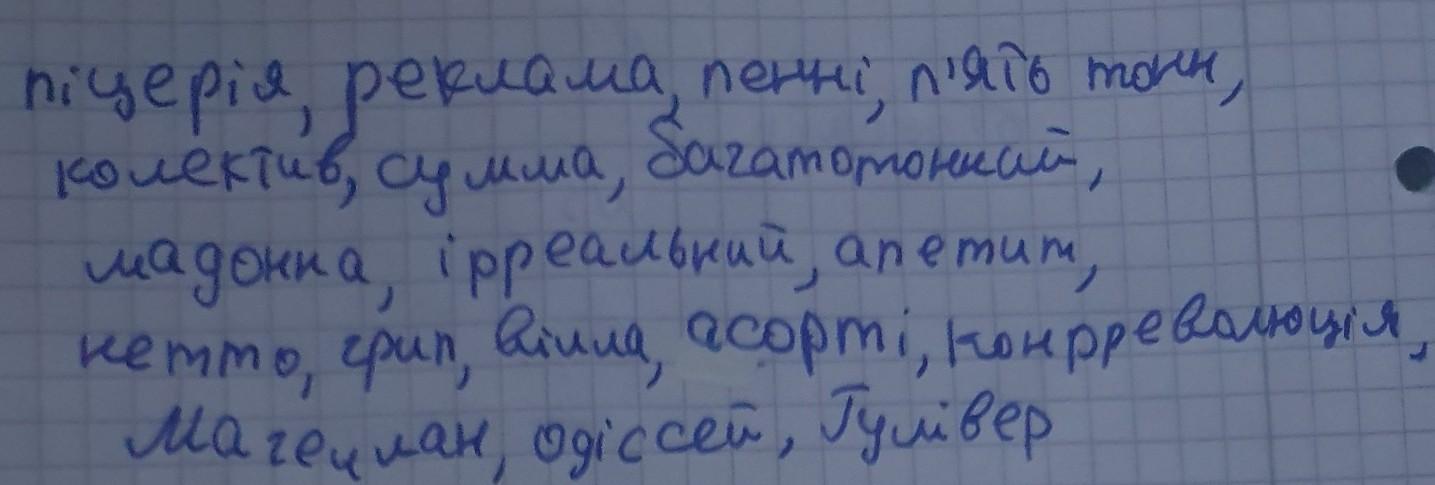 піцерія, реклама, пенні, п'ять тонн,
колектив, сумма, багатотонний,
мадонна, ірреальний, апетит,
нетто, грип, вілла, асорті, конрреволюція,
Магеллан, одіссей, Гулівер